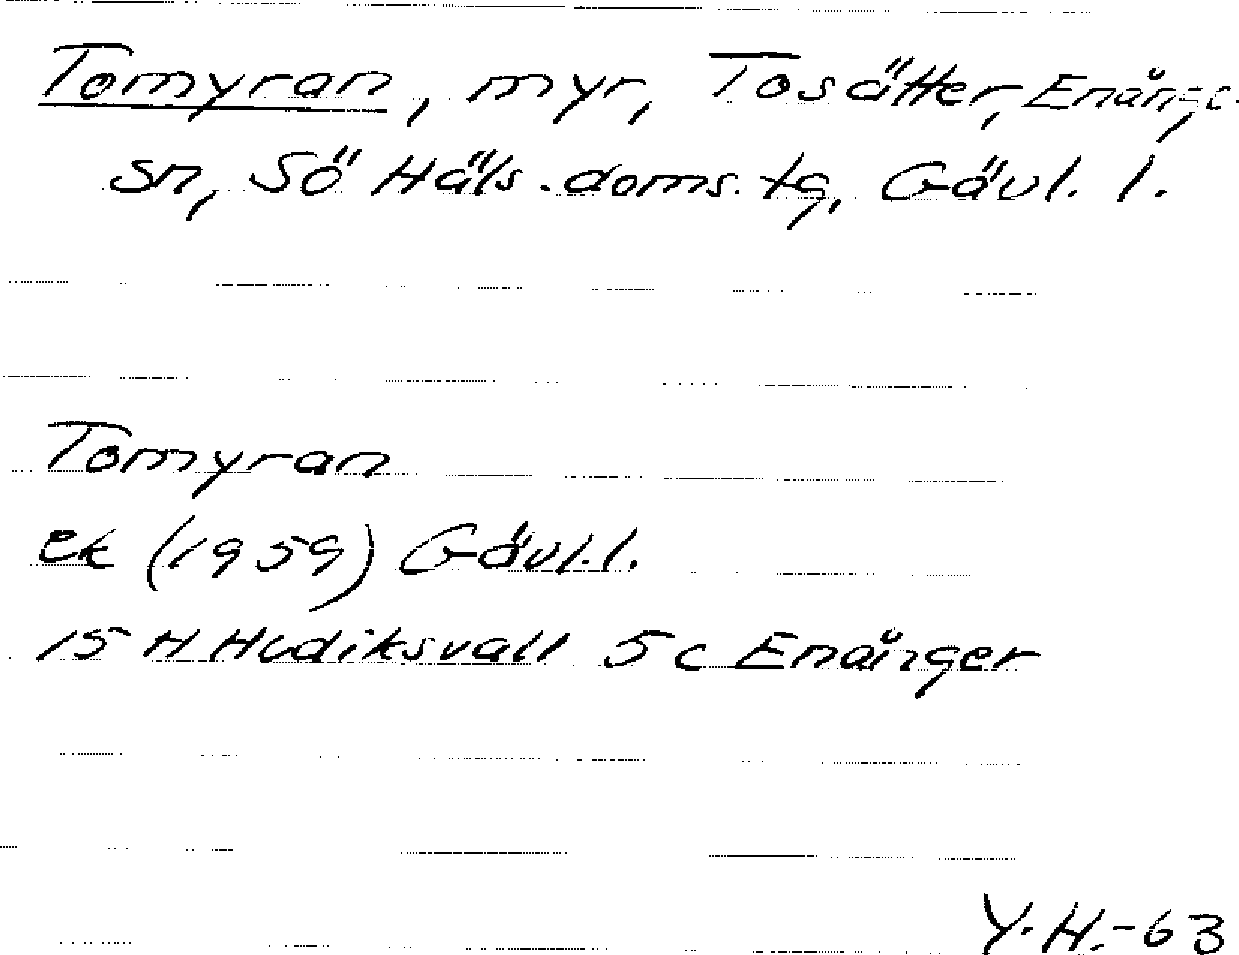 Tomyran, myr, Tosätter, Enånge
sn, Sö Häls. doms. tg, Gävl. l.
Tomyran
ek (1959) Gävl. l.
15 H Hudiksvall 5c Enånger
Y.H.-63